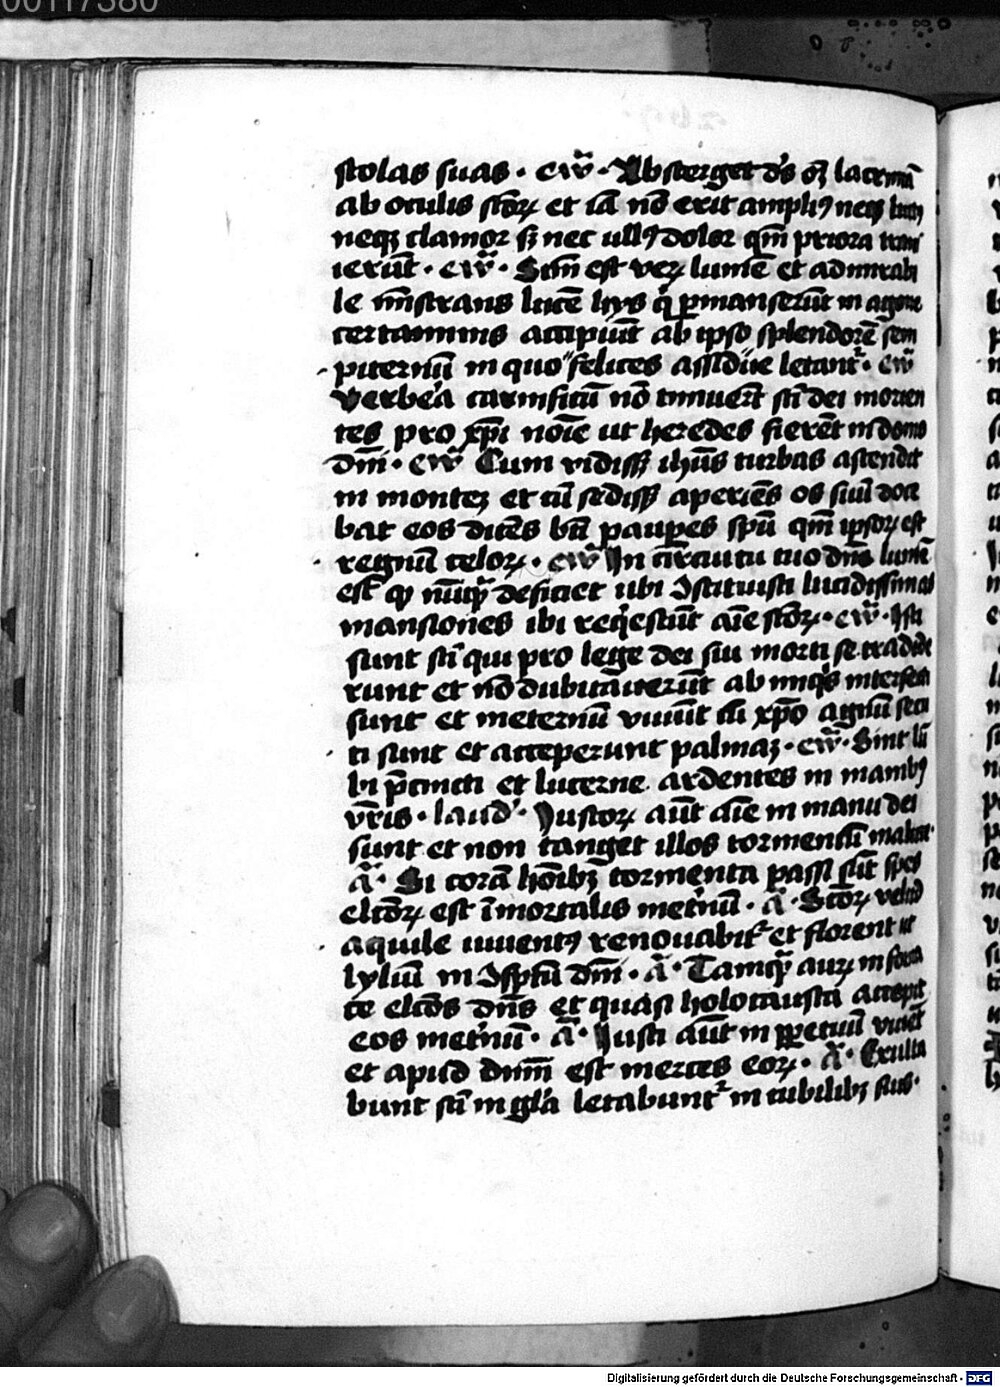 00117380
stolas suas · ew̃ · Absterget d̃s oꝫ lacrimã
ab oculis sc̃oꝝ et iã nõ erit ampliꝰ neqꝫ luctꝰ
neqꝫ clamor sꝫ nec ullꝰ dolor qm̃ priora transi
ierũt · ew̃ · Scim̃ est verꝫ lumẽ et admirabi
le mĩstrans lucẽ hijs q̃ ꝑmanserũt in agone
certaminis accipiũt ab ipso splendorẽ sem
piternũ in quo felices assidue letant᷑ · ew̃
verbera carnificũ nõ timuert̃ sc̃i dei morien
tes pro xp̃i noĩe ut heredes fierẽt in domo
dñi · ew̃ Cum vidissꝫ ihũs turbas ascendit
in montez et cũ sedissꝫ aperiẽs os suũ doce
bat eos dicẽs bt̃i pauꝑes spũ qm̃ ipsoꝝ est
regnũ celoꝝ · ew̃ In circuitu tuo dñe lumẽ
est qꝫ nũq̃ deficiet ubi ꝯstituisti lucidissimas
mansiones ibi req̃escũt aĩe sc̃oꝝ · ew̃ · Isti
sunt sc̃i qui pro lege dei sui morti se tradide
runt et nõ dubitauerũt ab iniq̃s interfecti
sunt et ineternũ viuũt cũ xp̃o agnũ secu
ti sunt et acceperunt palmaz · ew̃ · Sint lũ
bi p̃cincti et lucerne ardentes in manibꝰ
vr̃is · laud᷑ · Iustoꝝ aũt aĩe in manu dei
sunt et non tanget illos tormentũ malicie
ã · Si corã hoĩbꝫ tormenta passi sũt spes
elc̃oꝝ est ĩmortalis inet̃nũ · ã · Sc̃oꝝ velud
aquile iuuentꝰ renouabit᷑ et florent ut
lyliũ in ꝯspc̃u dñi · ã · Tamq̃ aurꝫ in forna
ce elc̃os dñs et quasi holocaustã accepit
eos inet̃nũ · ã · Iusti aũt in ꝑpetuũ viuẽt
et apud dnm̃ est merces eoꝝ · ã · Exulta
bunt sc̃i in gl̃a letabunt᷑ in cubilibꝫ suis ·
Digitalisierung gefördert durch die Deutsche Forschungsgemeinschaft · DFG